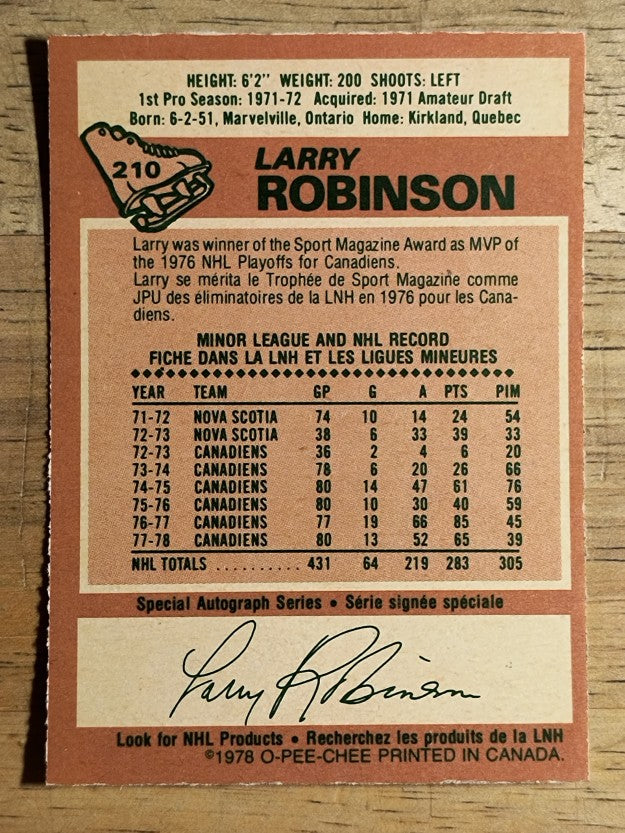 HEIGHT: 6'2" WEIGHT: 200 SHOOTS: LEFT
1st Pro Season: 1971-72 Acquired: 1971 Amateur Draft
Born: 6-2-51, Marvelville, Ontario Home: Kirkland, Quebec
210
LARRY
ROBINSON
Larry was winner of the Sport Magazine Award as MVP of
the 1976 NHL Playoffs for Canadiens.
Larry se mérita le Trophée de Sport Magazine comme
JPU des éliminatoires de la LNH en 1976 pour les Cana-
diens.
MINOR LEAGUE AND NHL RECORD
FICHE DANS LA LNH ET LES LIGUES MINEURES
YEAR TEAM GP G A PTS PIM
71-72 NOVA SCOTIA 74 10 14 24 54
72-73 NOVA SCOTIA 38 6 33 39 33
72-73 CANADIENS 36 2 4 6 20
73-74 CANADIENS 78 6 20 26 66
74-75 CANADIENS 80 14 47 61 76
75-76 CANADIENS 80 10 30 40 59
76-77 CANADIENS 77 19 66 85 45
77-78 CANADIENS 80 13 52 65 39
NHL TOTALS .......... 431 64 219 283 305
Special Autograph Series • Série signée spéciale
Larry Robinson
Look for NHL Products • Recherchez les produits de la LNH
©1978 O-PEE-CHEE PRINTED IN CANADA.